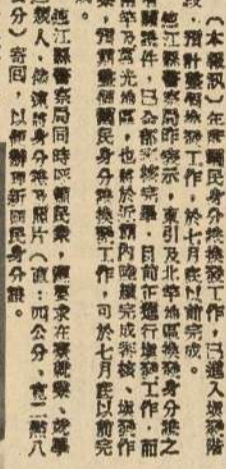 （本報訊）年度國民身分證換發工作，已進入填發階
段，預計整個換發工作，於七月底以前完成。
連江縣警察局昨表示，東引及北竿地區換發身分證之
有關證件，已全部審核完畢，目前正進行填發工作，而
南竿及莒光地區，也將於近期內陸續完成審核、填發作
業，預期整個國民身分證換發工作，可於七月底以前完
成。
連江縣警察局同時呼籲民衆，需要求在臺就業、就學
之親人，儘速將身分證及照片（直：四公分、寬二點八
公分）寄回，以便辦理新國民身分證。